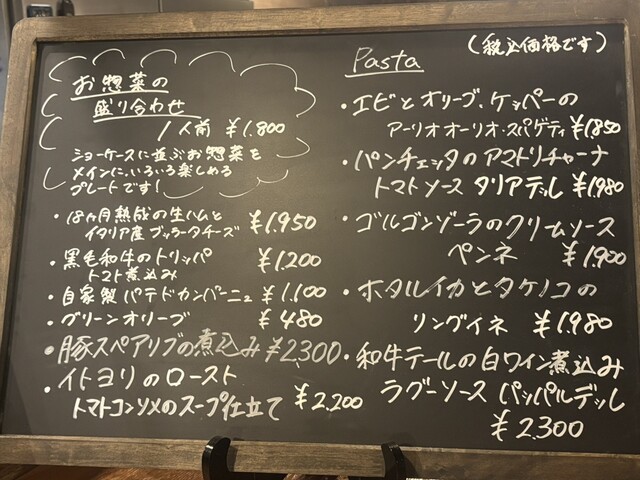 お惣菜の
盛り合わせ
1人前 ¥1.800
ショーケースに並ぶお惣菜を
メインに、いろいろ楽しめる
プレートです!
・18ヶ月熟成の生ハムと
イタリア産ブッラータチーズ ¥1.950
・黒毛和牛のトリッパ
トマト煮込み ¥1.200
・自家製パテドカンパーニュ ¥1.100
・グリーンオリーブ ¥480
・豚スペアリブの煮込み ¥2300
・イトヨリのロースト
トマトコンソメのスープ仕立て ¥2.200
(税込価格です)
Pasta
・エビとオリーブ、ケッパーの
アーリオオーリオ・スパゲティ ¥1850
・パンチェッタのアマトリチャーナ
トマトソース タリアテッレ ¥1,980
・ゴルゴンゾーラのクリームソース
ペンネ ¥1,900
・ホタルイカとタケノコの
リングイネ ¥1.980
・和牛テールの白ワイン煮込み
ラグーソース パッパルデッレ
¥2.300